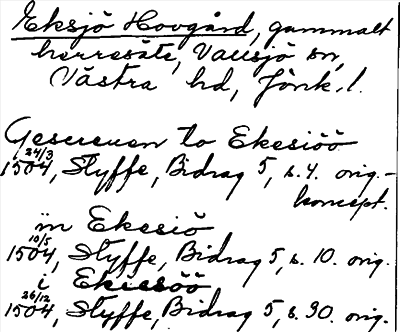 Eksjö Hovgård, gammalt
herresäte, Vallsjö sn,
Västra hd, Jönk. l.
Gescreuen to Ekesiöö
24/3
1504, Styffe, Bidrag 5, s. 4. orig.-
koncept.
in Ekesiö
10/5
1504, Styffe, Bidrag 5, s. 10. orig.
i Ekiesöö
26/12
1504, Styffe, Bidrag 5, s. 90. orig.